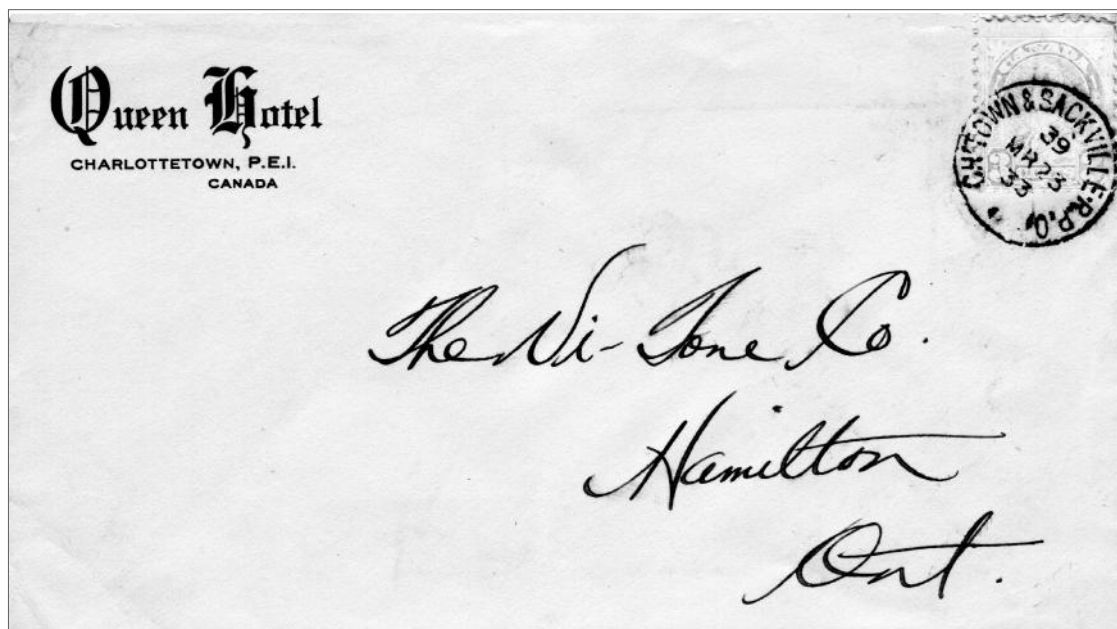 Queen Hotel
CHARLOTTETOWN, P.E.I.
CANADA
CANADA
CH'TOWN & SACKVILLE. R.P.O.
39
MR 23
33
3
The Vi-Tone Co.
Hamilton
Ont.